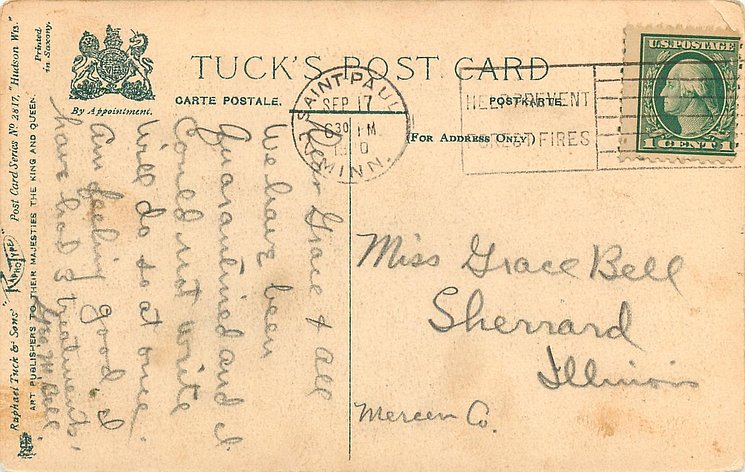 TUCK'S POST CARD
CARTE POSTALE.
POSTKARTE.
(FOR ADDRESS ONLY)
By Appointment.
SAINT PAUL
SEP 17
630 PM
MINN.
HELP PREVENT
FIRES
U.S. POSTAGE
1 CENT 1
Dear Grace & All
We have been
Quarantined and I
Could not write
Will do so at once.
Am feeling good I
have had 3 treatments.
M Bell
Miss Grace Bell
Sherrard
Illinois
Mercer Co.
Raphael Tuck & Sons' "RAPHOTYPE" Post Card Series No 2817, "Hudson Wis."
ART PUBLISHERS TO THEIR MAJESTIES THE KING AND QUEEN.
Printed
in Saxony.